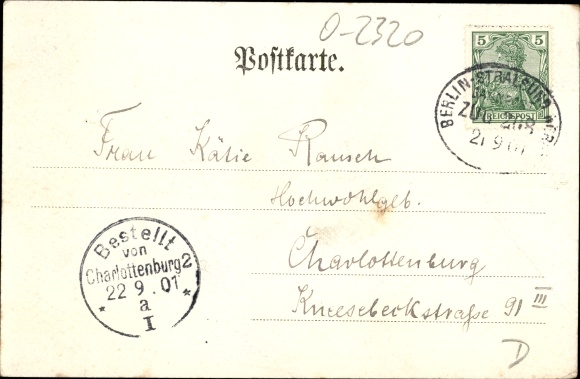 O-2320
Postkarte.
5 5
REICHSPOST
BERLIN-STRALSUND
ZUG
21 9 01
Frau Kätie Rausch
Hochwohlgeb.
Charlottenburg
Knesebeckstraße 91 III
Bestellt
von
Charlottenburg 2
22 9.01
* a *
I
D